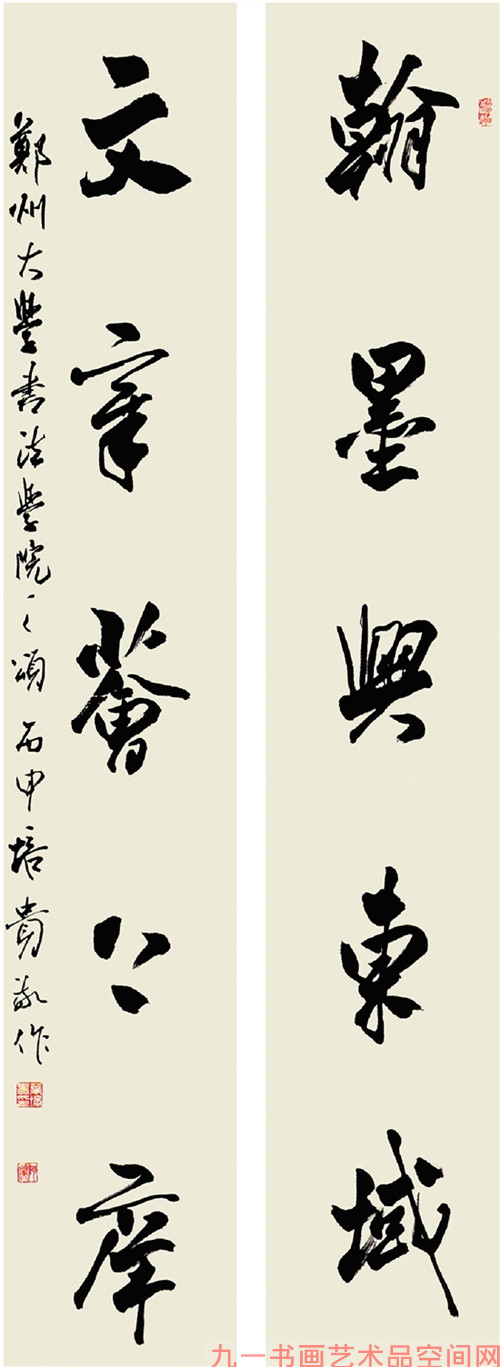 翰墨興東域
文章薈上庠
鄭州大學書法學院之頌 丙申培貴敬作
九一书画艺术品空间网